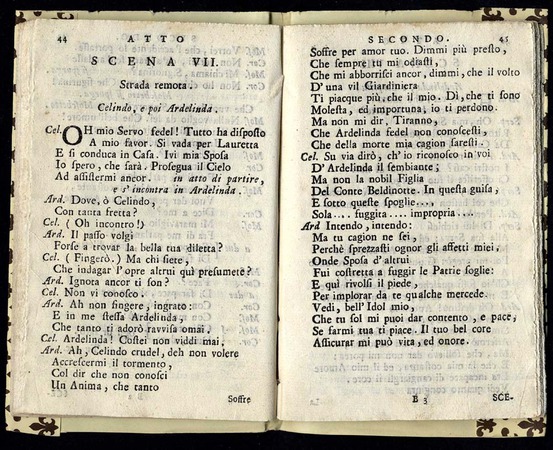 44 ATTO
SCENA VII.
Strada remota.
Celindo, e poi Ardelinda.
Cel. OH mio Servo fedel! Tutto ha disposto
A mio favor. Si vada per Lauretta
E si conduca in Casa. Ivi mia Sposa
Io spero, che sarà. Prosegua il Cielo
Ad assistermi ancor. in atto di partire,
e s' incontra in Ardelinda.
Ard. Dove, ò Celindo,
Con tanta fretta?
Cel. (Oh incontro!)
Ard. Il passo volgi
Forse a trovar la bella tua diletta?
Cel. (Fingerò.) Ma chi siete,
Che indagar l'opre altrui quì presumete?
Ard. Ignota ancor ti son?
Cel. Non vi conosco.
Ard. Ah non fingere, ingrato:
E in me stessa Ardelinda,
Che tanto ti adorò ravvisa omai.
Cel. Ardelinda! Costei non viddi mai.
Ard. Ah, Celindo crudel, deh non volere
Accrescermi il tormento,
Col dir che non conosci
Un Anima, che tanto
Soffre
SECONDO. 45
Soffre per amor tuo. Dimmi più presto,
Che sempre tu mi odiasti,
Che mi abborrisci ancor, dimmi, che il volto
D' una vil Giardiniera
Ti piacque più, che il mio. Dì, che ti sono
Molesta, ed importuna, io ti perdono.
Ma non mi dir, Tiranno,
Che Ardelinda fedel non conoscesti,
Che della morte mia cagion saresti.
Cel. Su via dirò, ch' io riconosco in voi
D' Ardelinda il sembiante;
Ma non la nobil Figlia
Del Conte Beldinotte. In questa guisa,
E sotto queste spoglie...,
Sola.... fuggita .... impropria....
Ard Intendo, intendo:
Ma tu cagion ne sei,
Perchè sprezzasti ognor gli affetti miei,
Onde Sposa d'altrui
Fui costretta a fuggir le Patrie soglie:
E quì rivolsi il piede,
Per implorar da te qualche mercede.
Vedi, bell' Idol mio,
Che tu sol mi puoi dar contento, e pace,
Se farmi tua ti piace. Il tuo bel core
Assicurar mi può vita, ed onore.
B 3 SCE-